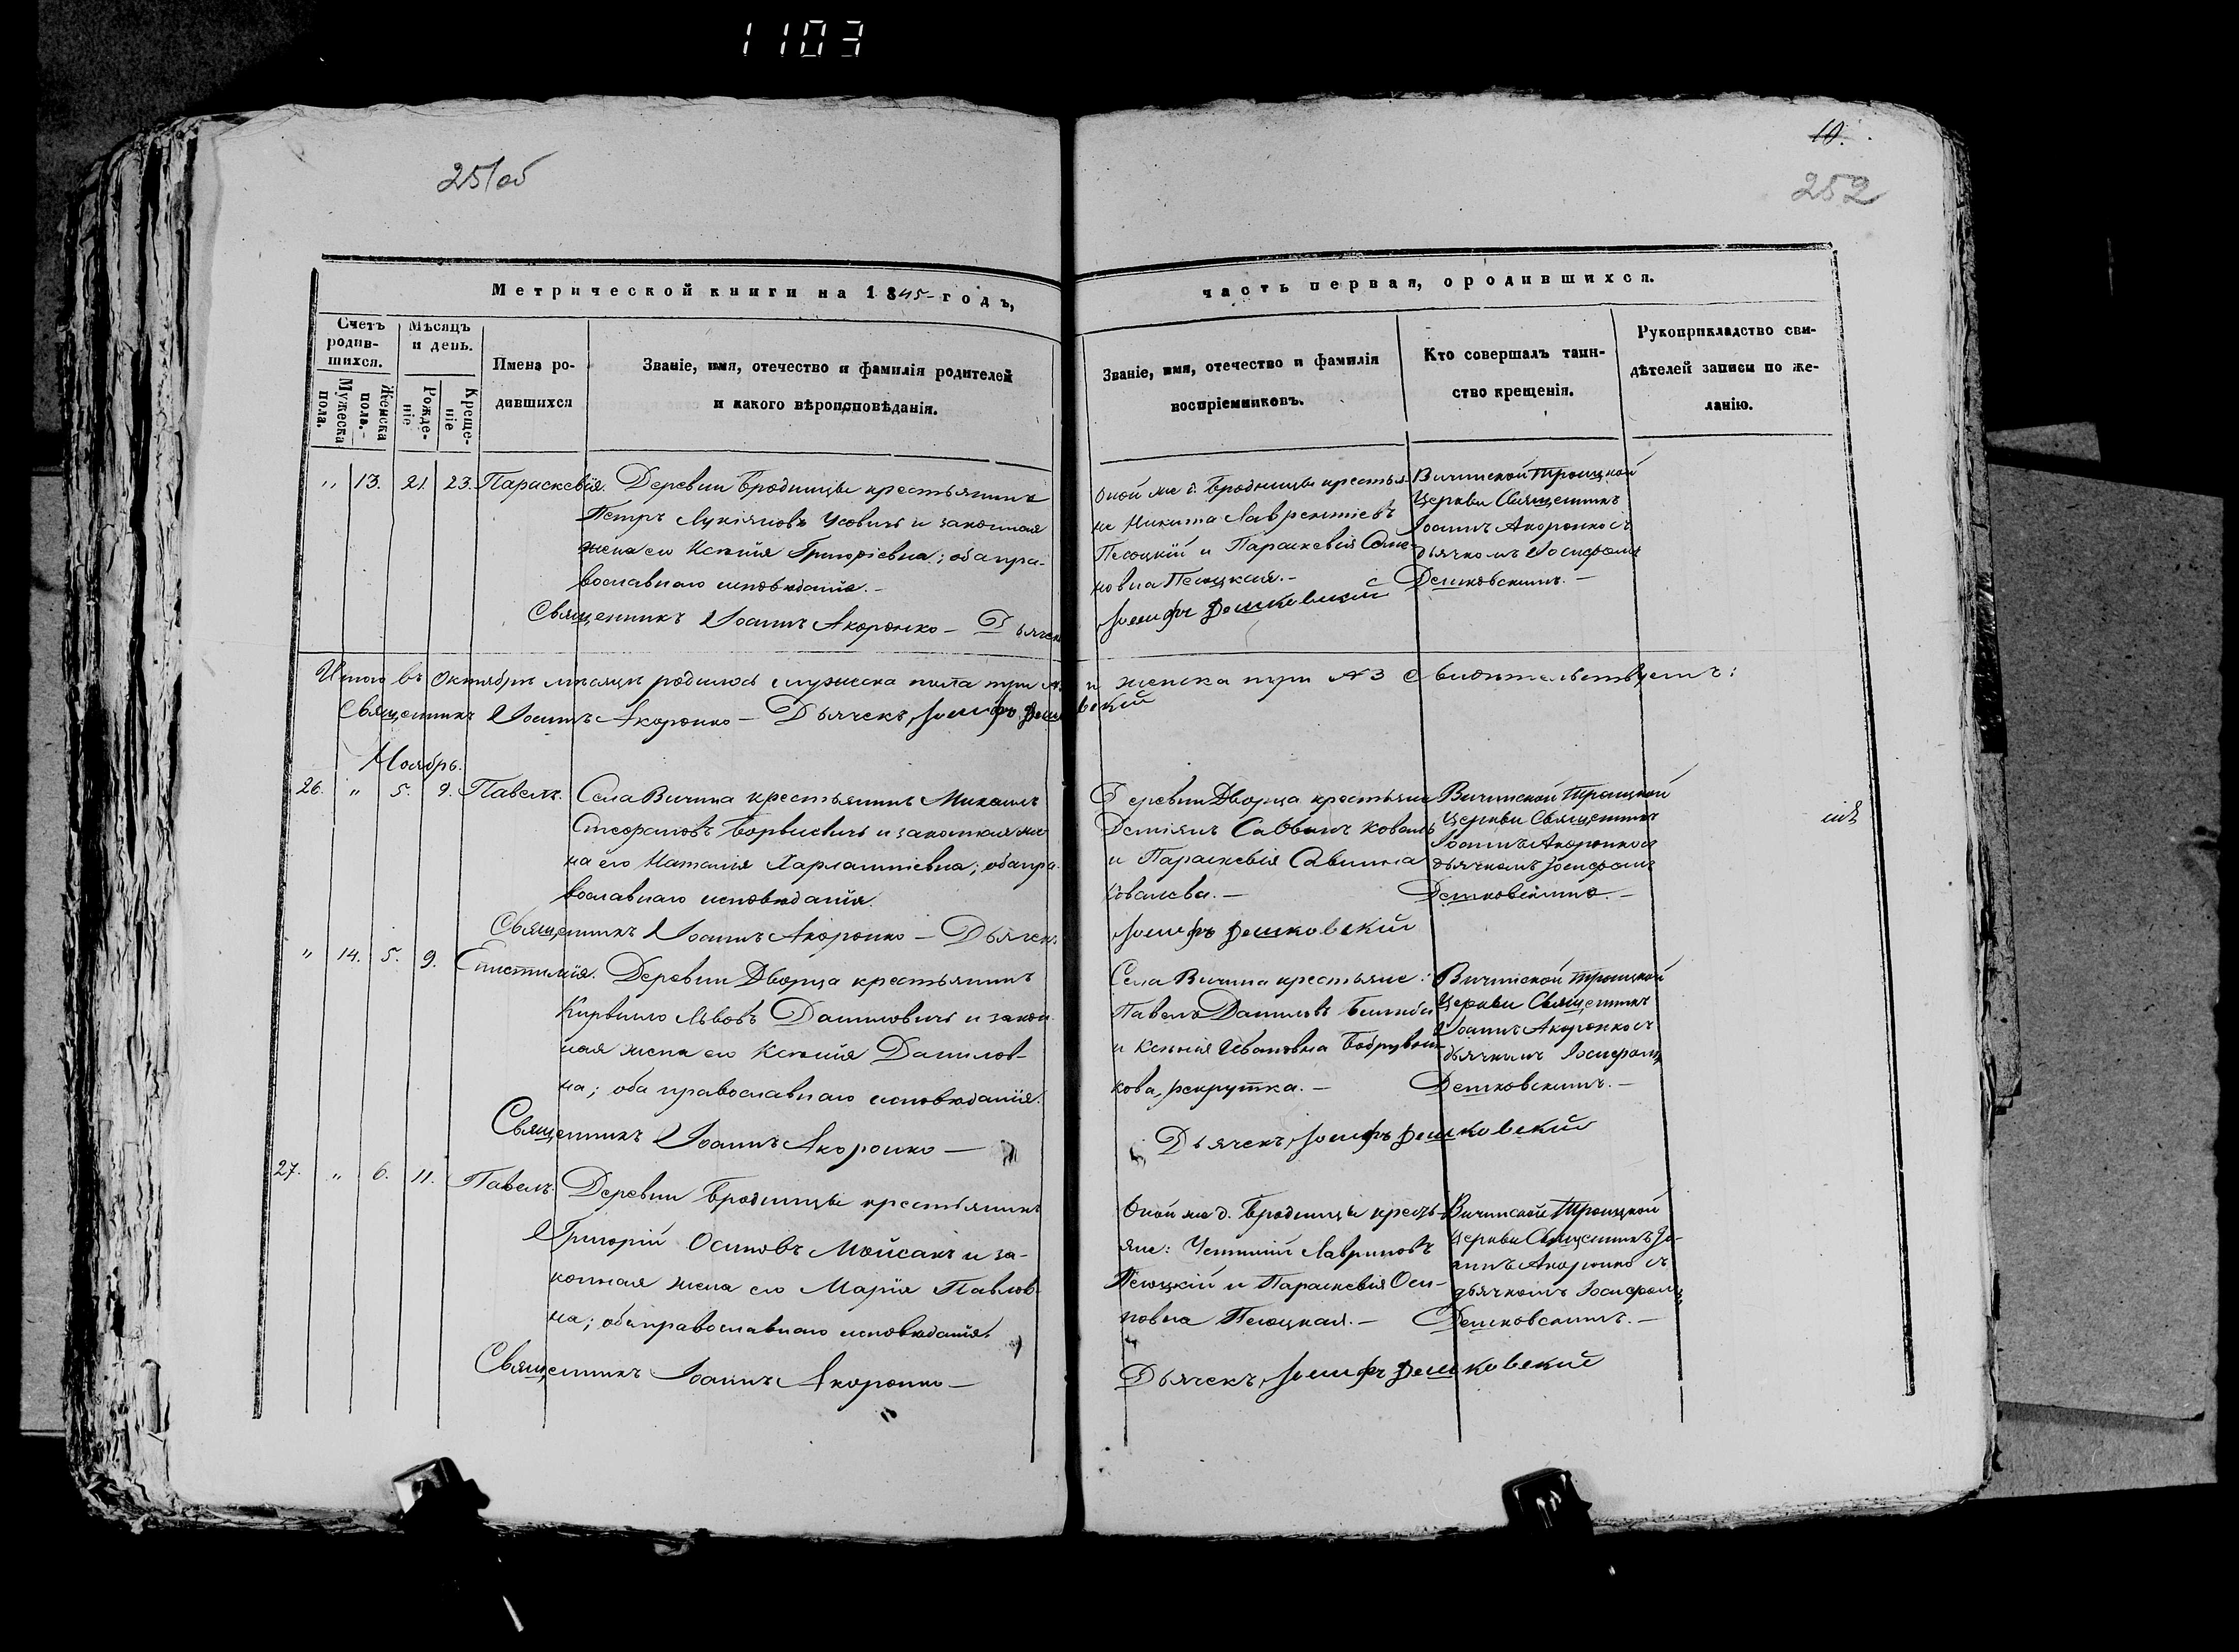 1103
251об
10.
252
Метрической книги на 1845 годъ,
часть первая, о родившихся.
Счетъ родив-шихся.
Мужеска пола.
Женска пола.
Мѣсяцъ и день.
Рожде-ніе
Креще-ніе
Имена ро-
дившихся
Званіе, имя, отечество и фамилія родителей
и какого вѣроисповѣданія.
Званіе, имя, отечество и фамилія
воспріемниковъ.
Кто совершалъ таин-
ство крещенія.
Рукоприкладство сви-
дѣтелей записи по же-
ланію.
" 13. 21. 23. Параскевія. Деревни Бродницы крестьянинъ
Петръ Лукіяновъ Усовичъ и законная
жена его Ксенія Григоріевна; оба пра-
вославнаго исповѣданія.-
Священникъ Іоаннъ Акоронко - Дьячекъ
Оной же д. Бродницы крестья-
не Никита Лаврентіевъ
и Параскевія
новна
Іосифъ Дешковскій
Вичинской Троицкой
Церкви Священникъ
Іоаннъ Акоронко съ
дьячкомъ Іосифомъ
Дешковскимъ.-
Итого въ Октябрѣ мѣсяцѣ родилось мужеска пола три и женска три №3 Свидѣтельствуемъ:
Священникъ Іоаннъ Акоронко - Дьячекъ, Іосифъ Дешковскій
Ноябрь.
26. " 5. 9. Павелъ. Села Вичина крестьянинъ Михаилъ
Стефановъ Борвисевичъ и законная же-
на его Наталія Харлампіевна; оба пра-
вославнаго исповѣданія.
Священникъ Іоаннъ Акоронко - Дьячекъ
Деревни Дворца крестьяне
Деміянъ Саввинъ Коваль
и Параскевія Савина
Ковалева.-
Іосифъ Дешковскій
Вичинской Троицкой
Церкви Священникъ
Іоаннъ Акоронко съ
дьячкомъ Іосифомъ
Дешковскимъ.-
" 14. 5. 9. Епистимія. Деревни Дворца крестьянинъ
Кириллъ Львовъ Даниловичъ и закон-
ная жена его Ксенія Данилов-
на; оба православнаго исповѣданія.
Священникъ Іоаннъ Акоронко -
Села Вичина крестьяне:
Павелъ Даниловъ
и Ксенія Ивановна
кова, рекрутка.-
Дьячекъ, Іосифъ Дешковскій
Вичинской Троицкой
Церкви Священникъ
Іоаннъ Акоронко съ
дьячкомъ Іосифомъ
Дешковскимъ.-
27. " 6. 11. Павелъ. Деревни Бродницы крестьянинъ
Григорій Осиповъ Мойсакъ и за-
конная жена его Марія Павлов-
на; оба православнаго исповѣданія.
Священникъ Іоаннъ Акоронко -
Оной же д. Бродницы кресть-
яне: Лавриновъ
и Параскевія Оси-
повна
Дьячекъ, Іосифъ Дешковскій
Вичинской Троицкой
Церкви Священникъ Іо-
аннъ Акоронко съ
дьячкомъ Іосифомъ
Дешковскимъ.-